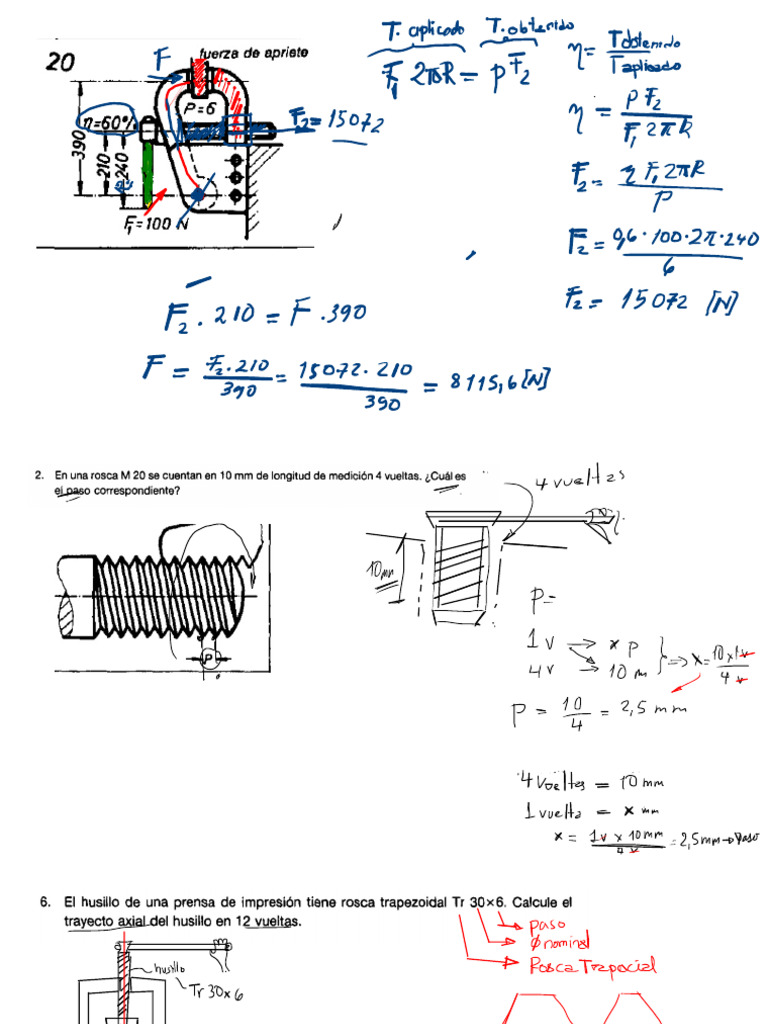 20
fuerza de apriete
F
P=6
η=60%
F₂= 15072
390
210
240
F₁=100 N
T. aplicado T. obtenido
F₁ 2πR = P F₂
η = Tobtenido / Taplicado
η = P F₂ / F₁ 2πR
F₂ = η F₁ 2πR / P
F₂ = 0,6 · 100 · 2π · 240 / 6
F₂ = 15072 [N]
F₂ . 210 = F . 390
F = F₂ . 210 / 390 = 15072 . 210 / 390 = 8115,6 [N]
2. En una rosca M 20 se cuentan en 10 mm de longitud de medición 4 vueltas. ¿Cuál es
el paso correspondiente?
4 vueltas
10mm
P
P=
1v → x P
4v → 10 m
⇒ x = 10 x 1v / 4v
P = 10 / 4 = 2,5 mm
4 Vueltas = 10 mm
1 vuelta = x mm
x = 1v x 10 mm / 4v = 2,5 mm → Paso
6. El husillo de una prensa de impresión tiene rosca trapezoidal Tr 30×6. Calcule el
trayecto axial del husillo en 12 vueltas.
paso
Ø nominal
Rosca Trapecial
husillo
Tr 30x6